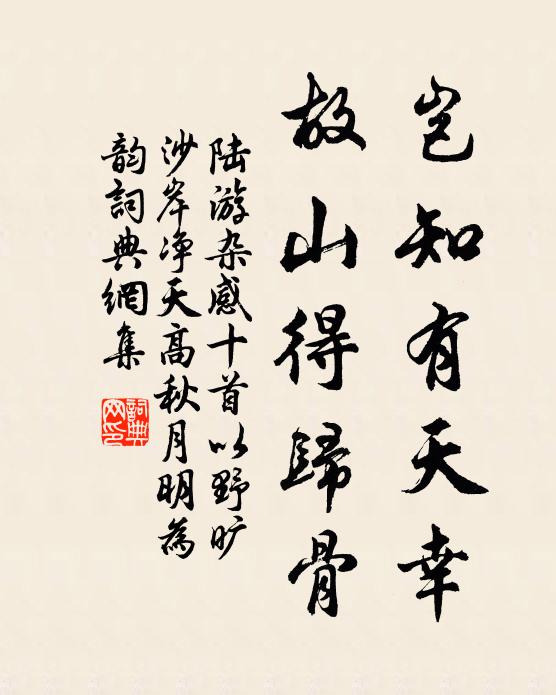 岂知有天幸
故山得歸骨
陆游杂感十首以野旷
沙岸净天高秋月明為
韵詞典網集
詞典
网印